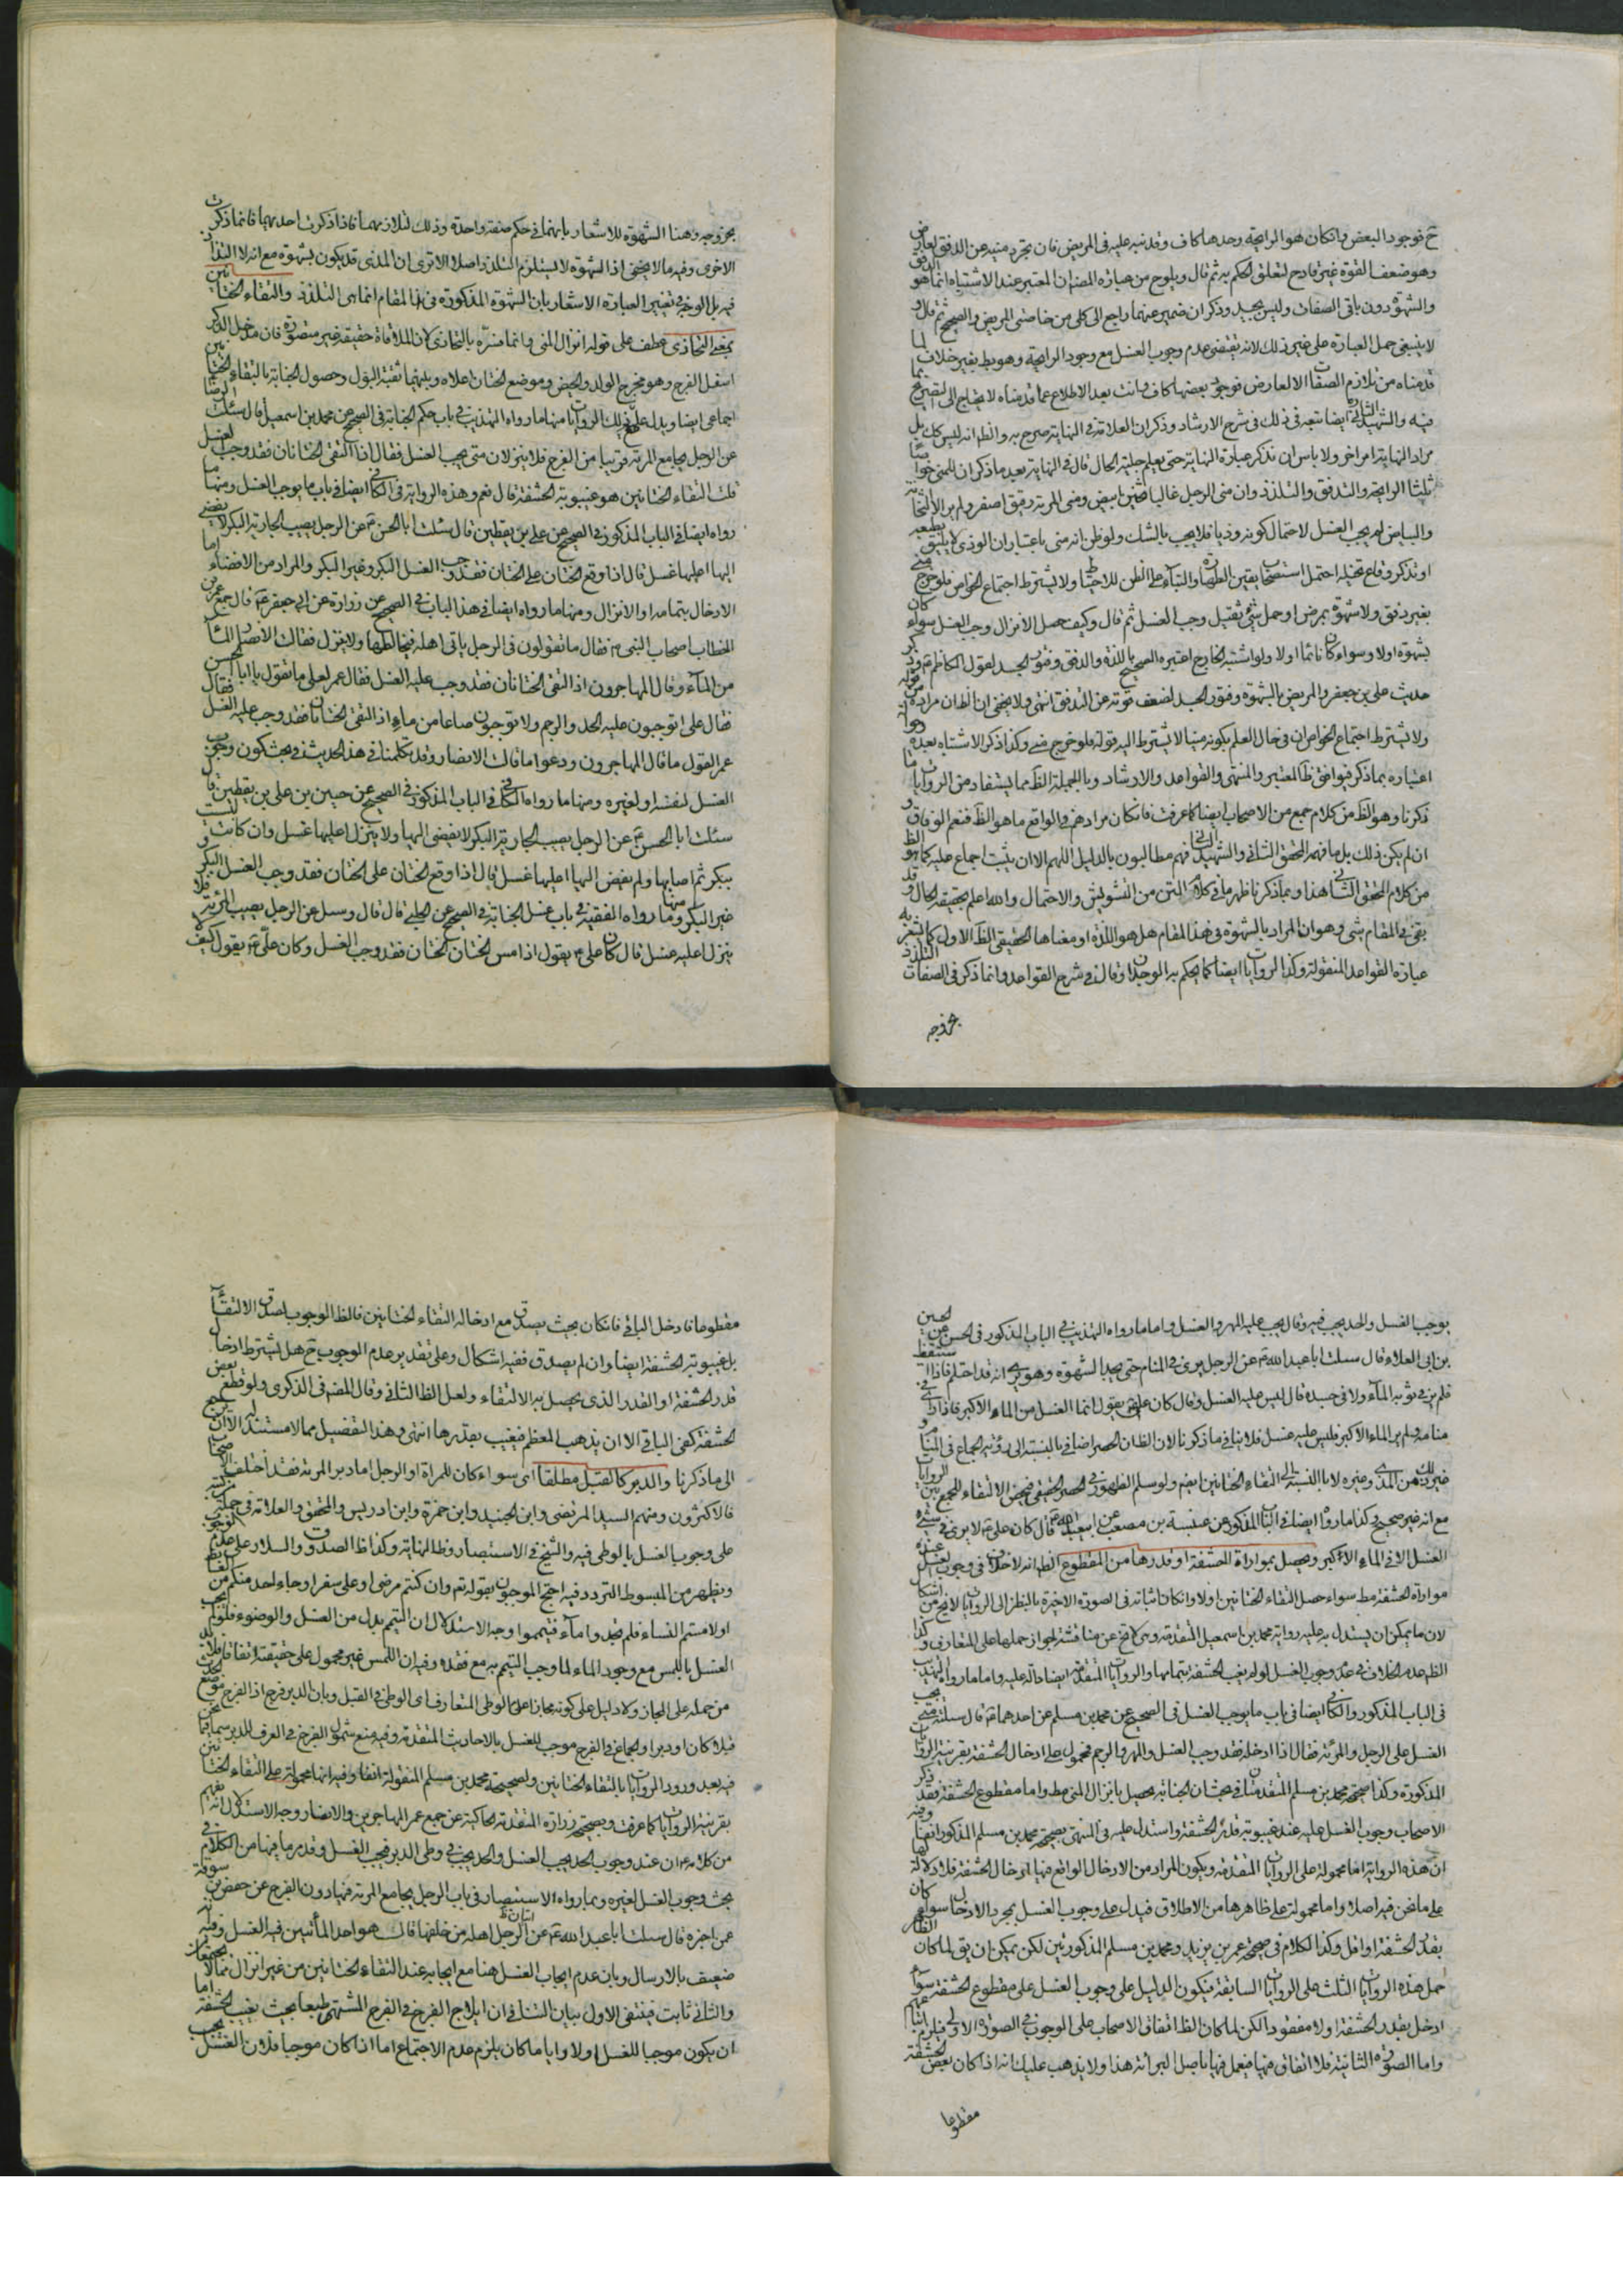 ح فوجود البعض وان كان هو الرايحة وحدها كاف وقد نبه عليه في المريض فان تجرد منيه عن الدفق لعارض
وهو ضعف القوة غير قادح لتعلق الحكم به ثم قال ويلوح من عبارة المصنف ان المعتبر عند الاشتباه انما هو الدفق
والشهوة دون باقي الصفات وليس بجيد وذكر ان ضمير عنهما راجع الى كل من خاصتي المريض والصحيح ثم قال و
لا ينبغي حمل العبارة على غير ذلك لانه يقتضي عدم وجوب الغسل مع وجود الرايحة وهو بط بغير خلاف لما
قدمناه من تلازم الصفات الا لعارض فوجود بعضها كاف وانت بعد الاطلاع عما قدمناه لا يحتاج الى التصريح بما
فيه والشهيد الثاني ايضا تبعه في ذلك في شرح الارشاد وذكر ان العلامة في النهاية صرح به والظ انه ليس كك بل
مراد النهاية امر اخر ولا باس ان نذكر عبارة النهاية حتى يعلم جلية الحال قال في النهاية بعد ما ذكر ان للمني خواصا
ثلثا الرايحة والتدفق والتلذذ وان مني الرجل غالبا ثخين ابيض ومني المرئة رقيق اصفر ولو لم ير الا الثخانة
والبياض لم يجب الغسل لاحتمال كونه وديا فلا يجب بالشك ولو ظن انه مني باعتبار ان الودي لا يليق بطبعه
او تذكر وقاع تخيله احتمل استصحاب يقين الطهارة والبناء على الظن للاحتياط ولا يشترط اجتماع الخواص فلو خرج مني
بغير دفق ولا شهوة بمرض او حمل شئ ثقيل وجب الغسل ثم قال وكيف حصل الانزال وجب الغسل سواء كان
بشهوة اولا وسواء كان نائما اولا ولو اشتبه الخارج اعتبر الصحيح باللذة والدفق وفتور الجسد لقول الكاظم ع وذكر
حديث علي بن جعفر والمريض بالشهوة وفتور الجسد لضعف قوته عن التدفق انتهى ولا يخفى ان الظ ان مراده من قوله
ولا يشترط اجتماع الخواص ان في حال العلم بكونه منيا لا يشترط اليه قوله فلو خرج مني وكذا ذكر الاشتباه بعده
اعتباره بما ذكر فوافق ظ المعتبر والمنتهى والقواعد والارشاد وبالجملة الظ مما يستفاد من الروايات ما
ذكرنا وهو الظ من كلام جمع من الاصحاب ايضا كما عرفت فان كان مرادهم في الواقع ما هو الظ فنعم الوفاق و
ان لم يكن ذلك بل ما فهمه المحقق الثاني والشهيد الثاني فهم مطالبون بالدليل اللهم الا ان يثبت اجماع عليه كما هو الظ
من كلام المحقق الثاني هذا وبما ذكرنا ظهر ما في كلام المتن من التشويش والاحتمال والله اعلم بحقيقة الحال وقد
بقي في المقام شئ وهو ان المراد بالشهوة في هذا المقام هل هو اللذة او معناها الحقيقي الظ الاول كما يشعر به
عبارة القواعد المنقولة وكذا الروايات ايضا كما يحكم به الوجدان وقال في شرح القواعد وانما ذكر في الصفات التلذذ
بخروجه
بخروجه وهنا الشهوة للاشعار بانهما في حكم صفة واحدة وذلك لتلازمهما فاذا ذكرت احديهما فانما ذكرت
الاخرى وفيه ما لا يخفى اذ الشهوة لا يستلزم التلذذ اصلا الا ترى ان المذي قد يكون بشهوة مع انه لا التذاذ
فيه بل الوجه في تغيير العبارة الاشعار بان الشهوة المذكورة في المقام انما هي التلذذ والتقاء الختانين
بمعنى التحاذي عطف على قوله انزال المني وانما فسره بالتحاذي لان الملاقاة حقيقة غير متصورة فان مدخل الذكر
اسفل الفرج وهو مخرج الولد والحيض وموضع الختان اعلاه وبينهما ثقبة البول وحصول الجنابة بالتقاء الختانين
اجماعي ايضا ويدل عليه الروايات منها ما رواه التهذيب في باب حكم الجنابة في الصحيح عن محمد بن اسمعيل قال سئلت الرضا
عن الرجل يجامع المرئة قريبا من الفرج فلا ينزلان متى يجب الغسل فقال اذا التقى الختانان فقد وجب الغسل
قلت التقاء الختانين هو غيبوبة الحشفة قال نعم وهذه الرواية في الكافي ايضا في باب ما يوجب الغسل ومنها ما
رواه ايضا في الباب المذكور في الصحيح عن علي بن يقطين قال سئلت ابا الحسن ع عن الرجل يصيب الجارية البكر لا يفضي
اليها اعليها غسل قال اذا وقع الختان على الختان فقد وجب الغسل البكر وغير البكر والمراد من الافضاء اما
الادخال بتمامه او الانزال ومنها ما رواه ايضا في هذا الباب في الصحيح عن زرارة عن ابي جعفر ع قال جمع عمر بن
الخطاب اصحاب النبي ص فقال ما تقولون في الرجل ياتي اهله فيخالطها ولا ينزل فقالت الانصار الماء
من الماء وقال المهاجرون اذا التقى الختانان فقد وجب عليه الغسل فقال عمر لعلي ما تقول يا ابا الحسن
فقال علي اتوجبون عليه الحد والرجم ولا توجبون صاعا من ماء اذا التقى الختانان فقد وجب عليه الغسل فقال
عمر القول ما قال المهاجرون ودعوا ما قالت الانصار وقد تكلمنا في هذا الحديث في بحث كون وجوب
الغسل لنفسه او لغيره ومنها ما رواه الكافي في الباب المذكور في الصحيح عن حسين بن علي بن يقطين قال
سئلت ابا الحسن ع عن الرجل يصيب الجارية البكر لا يفضي اليها ولا ينزل اعليها غسل وان كانت ليست
ببكر ثم اصابها ولم يفض اليها اعليها غسل قال اذا وقع الختان على الختان فقد وجب الغسل البكر و
غير البكر ومنها ما رواه الفقيه في باب غسل الجنابة في الصحيح عن الحلبي قال قال وسئل عن الرجل يصيب المرئة فلا
ينزل اعليه غسل قال كان علي ع يقول اذا مس الختان الختان فقد وجب الغسل وكان علي ع يقول كيف لا
يوجب الغسل والحد يجب فيه وقال يجب عليه المهر والغسل واما ما رواه التهذيب في الباب المذكور في الحسن عن الحسين
بن ابي العلاء قال سئلت ابا عبد الله ع عن الرجل يرى في المنام حتى يجد الشهوة وهو يرى انه قد احتلم فاذا استيقظ
فلم ير في ثوبه الماء ولا في جسده قال ليس عليه الغسل وقال كان علي ع يقول انما الغسل من الماء الاكبر فاذا راى في
منامه ولم ير الماء الاكبر فليس عليه غسل فلا ينافي ما ذكرنا لان الظ ان الحصر اضافي بالنسبة الى رؤية الجماع في المنام و
غير ذلك من المذي وغيره لا بالنسبة الى التقاء الختانين ايضا ولو سلم الظهور في الحصر الحقيقي فيخص الالتقاء للجمع بين الروايات
مع انه غير صحيح وكذا ما رواه ايضا في الباب المذكور عن عنبسة بن مصعب عن ابي عبد الله ع قال كان علي ع لا يرى في شئ
الغسل الا في الماء الاكبر ويحصل بمواراة الحشفة او قدرها من المقطوع الظ انه لا خلاف في وجوب الغسل عند
مواراة الحشفة مط سواء حصل التقاء الختانين اولا وان كان اثباته في الصورة الاخيرة بالنظر الى الروايات لا يخ من اشكال
لان ما يمكن ان يستدل به عليه رواية محمد بن اسمعيل المتقدمة وهي لا يخ عن مناقشة لجواز حملها على المتعارف وكذا
الظ عدم الخلاف في عدم وجوب الغسل لو لم يغب الحشفة بتمامها والروايات المتقدمة ايضا دالة عليه واما ما رواه التهذيب
في الباب المذكور والكافي ايضا في باب ما يوجب الغسل في الصحيح عن محمد بن مسلم عن احدهما ع قال سئلته متى يجب
الغسل على الرجل والمرئة فقال اذا ادخله فقد وجب الغسل والمهر والرجم فمحمول على ادخال الحشفة بقرينة الروايات
المذكورة وكذا صحيحة محمد بن مسلم المتقدمة في بحث ان الجنابة يحصل بانزال المني مط واما مقطوع الحشفة فقد ذكر
الاصحاب وجوب الغسل عليه عند غيبوبة قدر الحشفة واستدل عليه في المنتهى بصحيحة محمد بن مسلم المذكورة انفا وفيه
ان هذه الرواية اما محمولة على الروايات المتقدمة ويكون المراد من الادخال الواقع فيها ادخال الحشفة فلا دلالة لها
على ما نحن فيه اصلا واما محمولة على ظاهرها من الاطلاق فيدل على وجوب الغسل بمجرد الادخال سواء كان
بقدر الحشفة او اقل وكذا الكلام في صحيحة عمر بن يزيد ومحمد بن مسلم المذكورتين لكن يمكن ان يق لما كان الظاهر
حمل هذه الروايات الثلث على الروايات السابقة فيكون الدليل على وجوب الغسل على مقطوع الحشفة سواء
ادخل بقدر الحشفة اولا مفقودا لكن لما كان الظ اتفاق الاصحاب على الوجوب في الصورة الاولى فيلزم اتباعهم
واما الصورة الثانية فلا اتفاق فيها فيعمل فيها باصل البرائة هذا ولا يذهب عليك انه اذا كان بعض الحشفة
مقطوعا
مقطوعا فادخل الباقي فان كان بحيث يصدق مع ادخاله التقاء الختانين فالظ الوجوب لصدق الالتقاء
بل غيبوبة الحشفة ايضا وان لم يصدق ففيه اشكال وعلى تقدير عدم الوجوب ح هل يشترط ادخال
قدر الحشفة او القدر الذي يحصل به الالتقاء ولعل الظ الثاني وقال المصنف في الذكرى ولو قطع بعض
الحشفة كفى الباقي الا ان يذهب المعظم فيغيب بقدرها انتهى وهذا التفصيل مما لا مستند له الا ان يرجع
الى ما ذكرنا والدبر كالقبل مطلقا اي سواء كان للمراة او الرجل اما دبر المرئة فقد اختلف الاصحاب فيه
فالاكثرون ومنهم السيد المرتضى وابن الجنيد وابن حمزة وابن ادريس والمحقق والعلامة في جملة من كتبه
على وجوب الغسل بالوطي فيه والشيخ في الاستبصار وظ النهاية وكذا ظ الصدوق والسلار على عدم الوجوب
ويظهر من المبسوط التردد فيه احتج الموجبون بقوله تع وان كنتم مرضى او على سفر او جاء احد منكم من الغائط
او لامستم النساء فلم تجدوا ماء فتيمموا وجه الاستدلال ان التيمم بدل من الغسل والوضوء فلو لم يجب
الغسل باللمس مع وجود الماء لما وجب التيمم به مع فقده وفيه ان اللمس غير محمول على حقيقته اتفاقا فلا بد
من حمله على المجاز ولا دليل على كونه مجازا عدا الوطي المتعارف اي الوطي في القبل وبان الدبر فرج اذ الفرج موضع الحدث
قبلا كان او دبرا والجماع في الفرج موجب للغسل بالاحاديث المتقدمة وفيه منع شمول الفرج في العرف للدبر سيما فيما نحن
فيه بعد ورود الروايات بالتقاء الختانين ولصحيحة محمد بن مسلم المنقولة انفا وفيه انها محمولة على التقاء الختانين
بقرينة الروايات كما عرفت وبصحيحة زرارة المتقدمة الحاكية عن جمع عمر المهاجرين والانصار وجه الاستدلال انه يفهم
من كلامه ع ان عند وجوب الحد يجب الغسل والحد يجب في وطي الدبر فيجب الغسل وقد مر ما فيها من الكلام في
بحث وجوب الغسل لغيره وبما رواه الاستبصار في باب الرجل يجامع المرئة فيما دون الفرج عن حفص بن سوقة
عمن اخبره قال سئلت ابا عبد الله ع عن الرجل ياتي اهله من خلفها قال هو احد المأتيين فيه الغسل وفيه انه
ضعيف بالارسال وبان عدم ايجاب الغسل هنا مع ايجابه عند التقاء الختانين من غير انزال مما لا يجتمعان
والثاني ثابت فينتفي الاول بيان التنافي ان ايلاج الفرج في الفرج المشتهى طبعا بحيث يغيب الحشفة اما
ان يكون موجبا للغسل اولا وايا ما كان يلزم عدم الاجتماع اما اذا كان موجبا فلان الغسل يجب